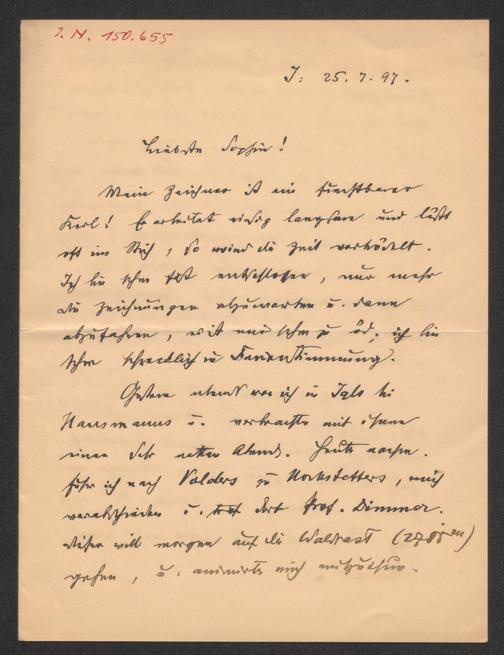 I. N. 150.655
I: 25. 7. 97.
Liebste Sophie!
Mein Zeichner ist ein furchtbarer
Kerl! Er arbeitet riesig langsam und läßt
oft im Stich, so wird die Zeit vertrödelt.
Ich bin schon fest entschlossen, nur mehr
die Zeichnungen abzuwarten u. dann
abzufahren, es ist mir schon zu öd; ich bin
schon schrecklich in Ferienstimmung.
Gestern abends war ich in Igls bei
Hausmanns u. verbrachte mit ihnen
einen sehr netten Abend. Heute nachm.
fuhr ich nach Volders zu Hochstetters, mich
verabschieden u. traf dort Prof. Dimmer.
Dieser will morgen auf die Waldrast
gehen, u. animirte mich mitzuthun.